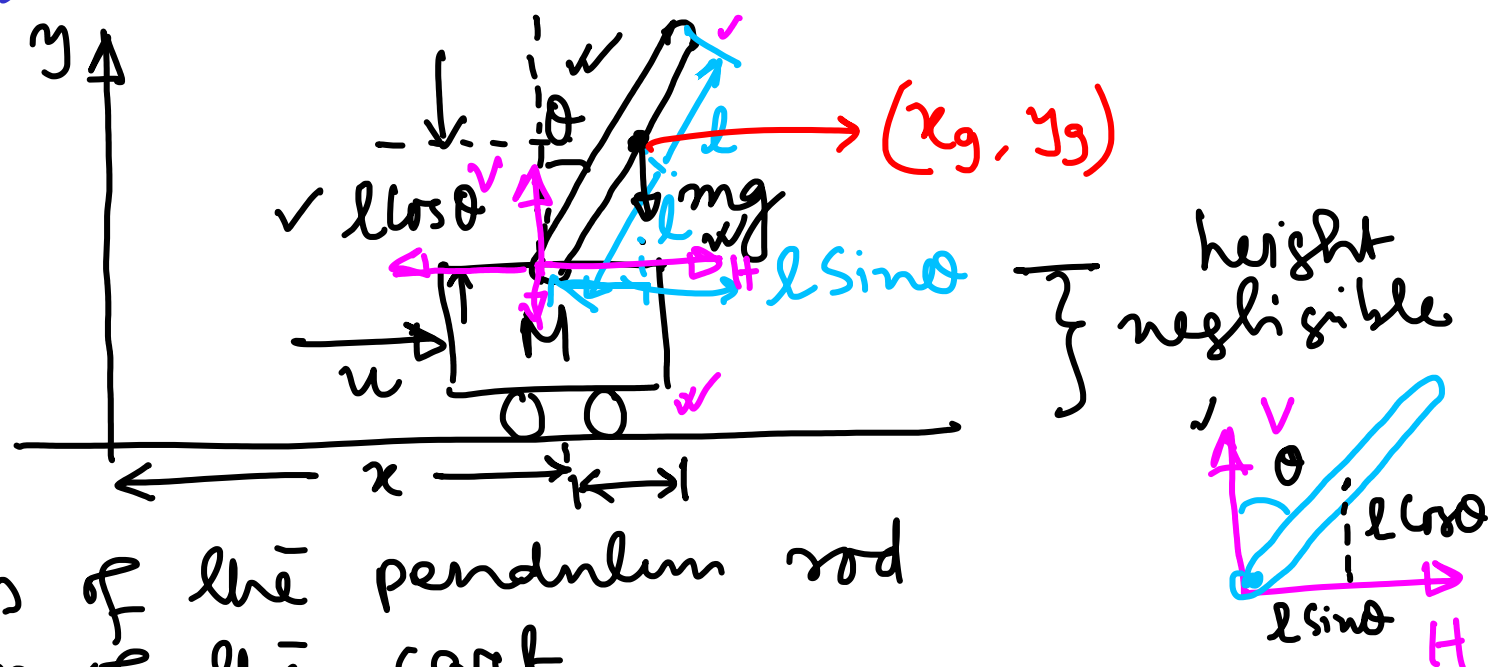 y
θ
l
(xg, yg)
V
l cosθ
l
mg
H
l sinθ
height
negligible
M
u
x
V
θ
l cosθ
l sinθ
H
of the pendulum rod
of the cart